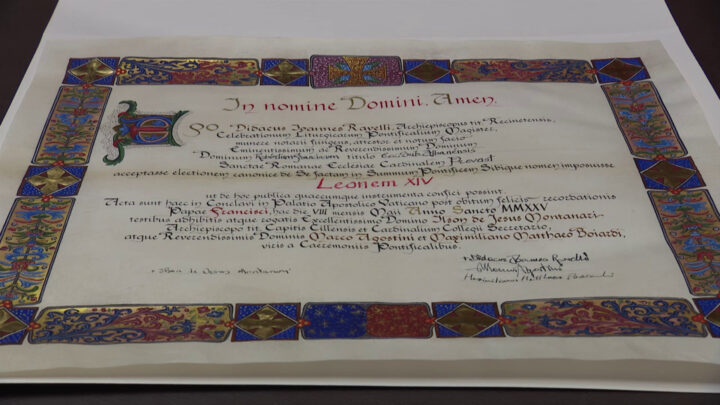 In nomine Domini. Amen.
EGO Didacus Ioannes Ravelli, Archiepiscopus tit Recinetensis,
Celebrationum Liturgicarum Pontificalium Magister,
munere notarii fungens, attestor et notum facio
Eminentissimum ac Reverendissimum Dominum
Dominum Robertum Franciscum titulo
Sanctae Romanae Ecclesiae Cardinalem Prevost
acceptasse electionem canonice de Se factam in Summum Pontificem Sibique nomen imposuisse
Leonem XIV
ut de hoc publica quaecumque instrumenta confici possint.
Acta sunt haec in Conclavi in Palatio Apostolico Vaticano post obitum felicis recordationis
Papae Francisci, hac die VIII mensis Maii Anno Sancto MMXXV
testibus adhibitis atque rogatis Excellentissimo Domino Ilson de Jesus Montanari
Archiepiscopo tit. Capitis Cillensis et Cardinalium Collegii Secretario,
atque Reverendissimis Dominis Marco Agostini et Maximiliano Matthaeo Boiardi,
viris a Caeremoniis Pontificalibus.
+ Didacus Ioannes Ravelli
+ Ilson de Jesus Montanari
Marcus Agostini